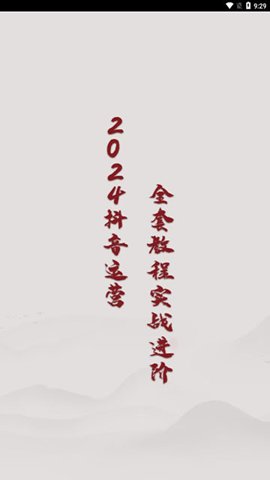 9:29
2024抖音运营
全套教程实战进阶